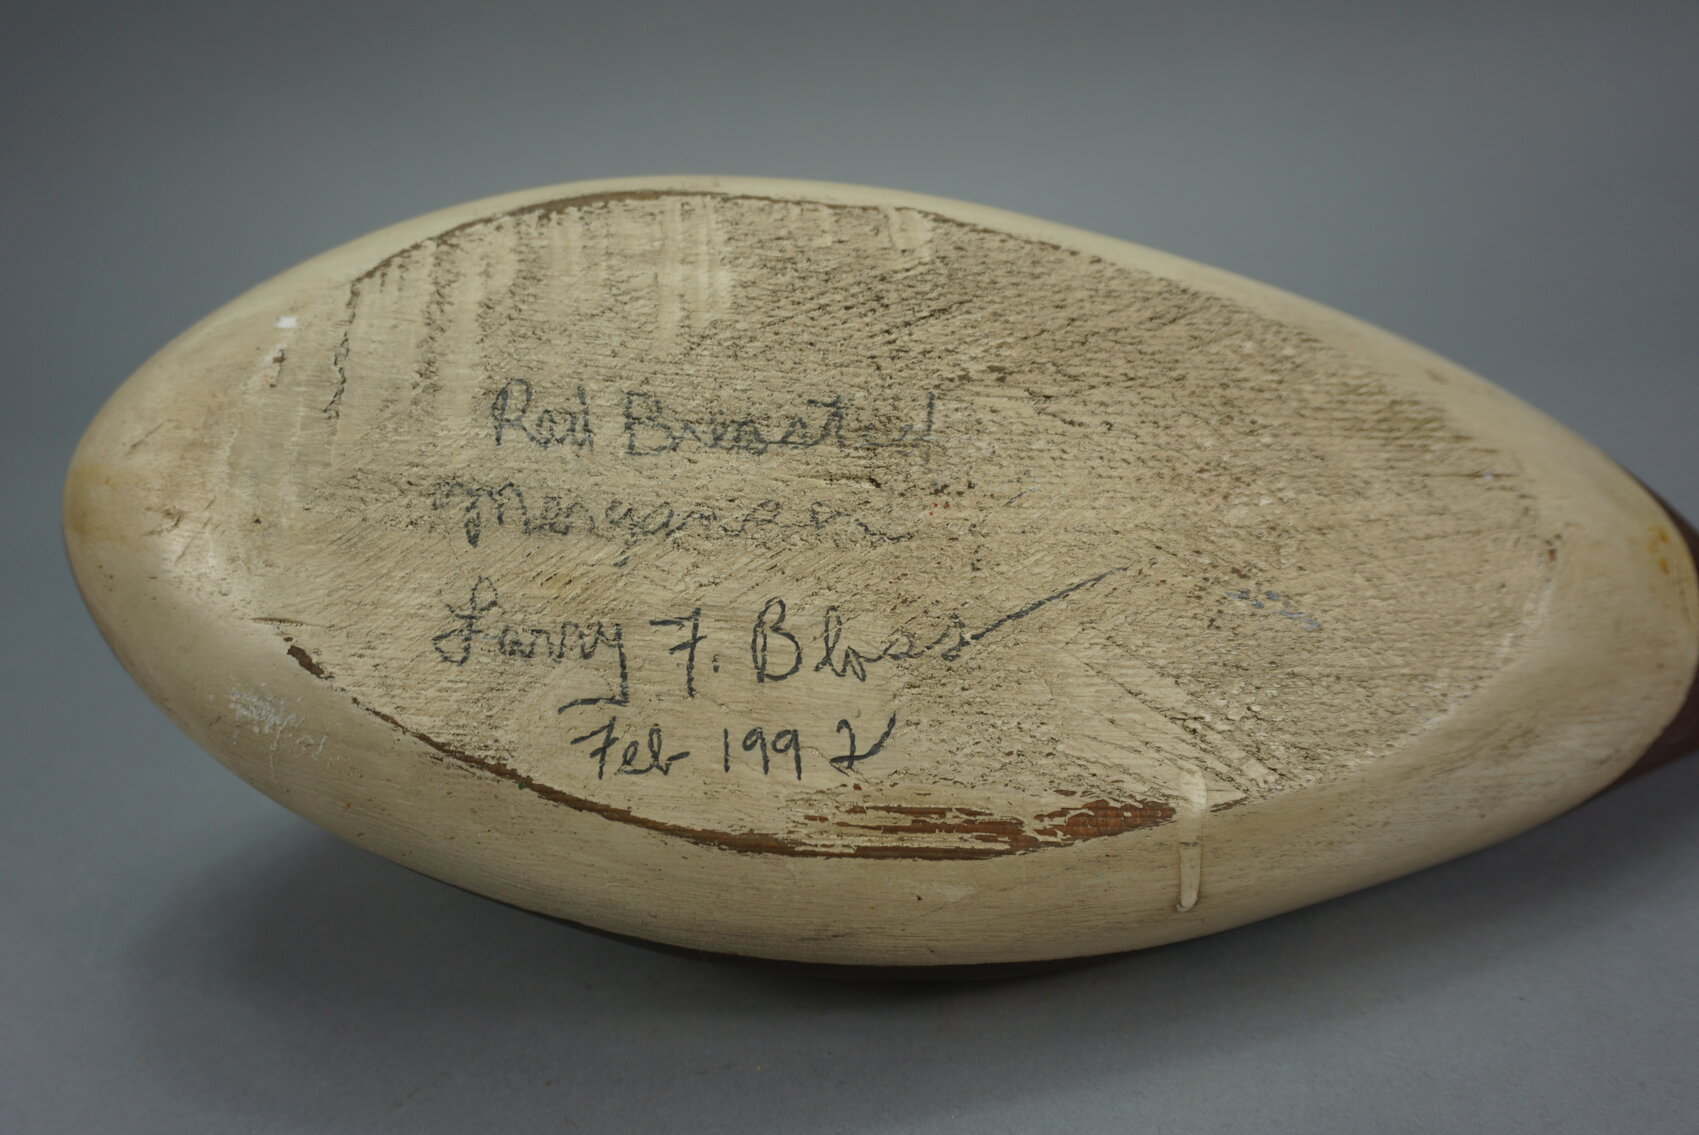 Red Breasted
Merganser
Larry F. Bloss
Feb 1992